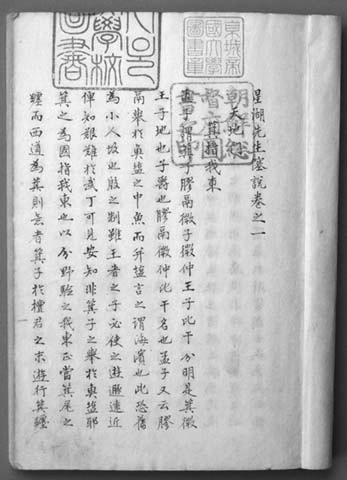 京城帝國大學圖書章
學校圖書
星湖先生僿說卷之一
天地
箕指我東
孟子謂微子膠鬲微子微仲王子比干分明是箕微
王子地也子爵也膠鬲微仲比干名也孟子又云膠
鬲舉於魚鹽之中魚而并鹽言之謂海濱也此恐舊
為小人故也殷之制雖王者之子必使之遊遯遠近
俾知艱難於武丁可見安知非箕子之舉於魚鹽耶
箕之為國指我東也以分野驗之我東正當箕尾之
躔而西道為箕則無者箕子於檀君之末遊行箕躔